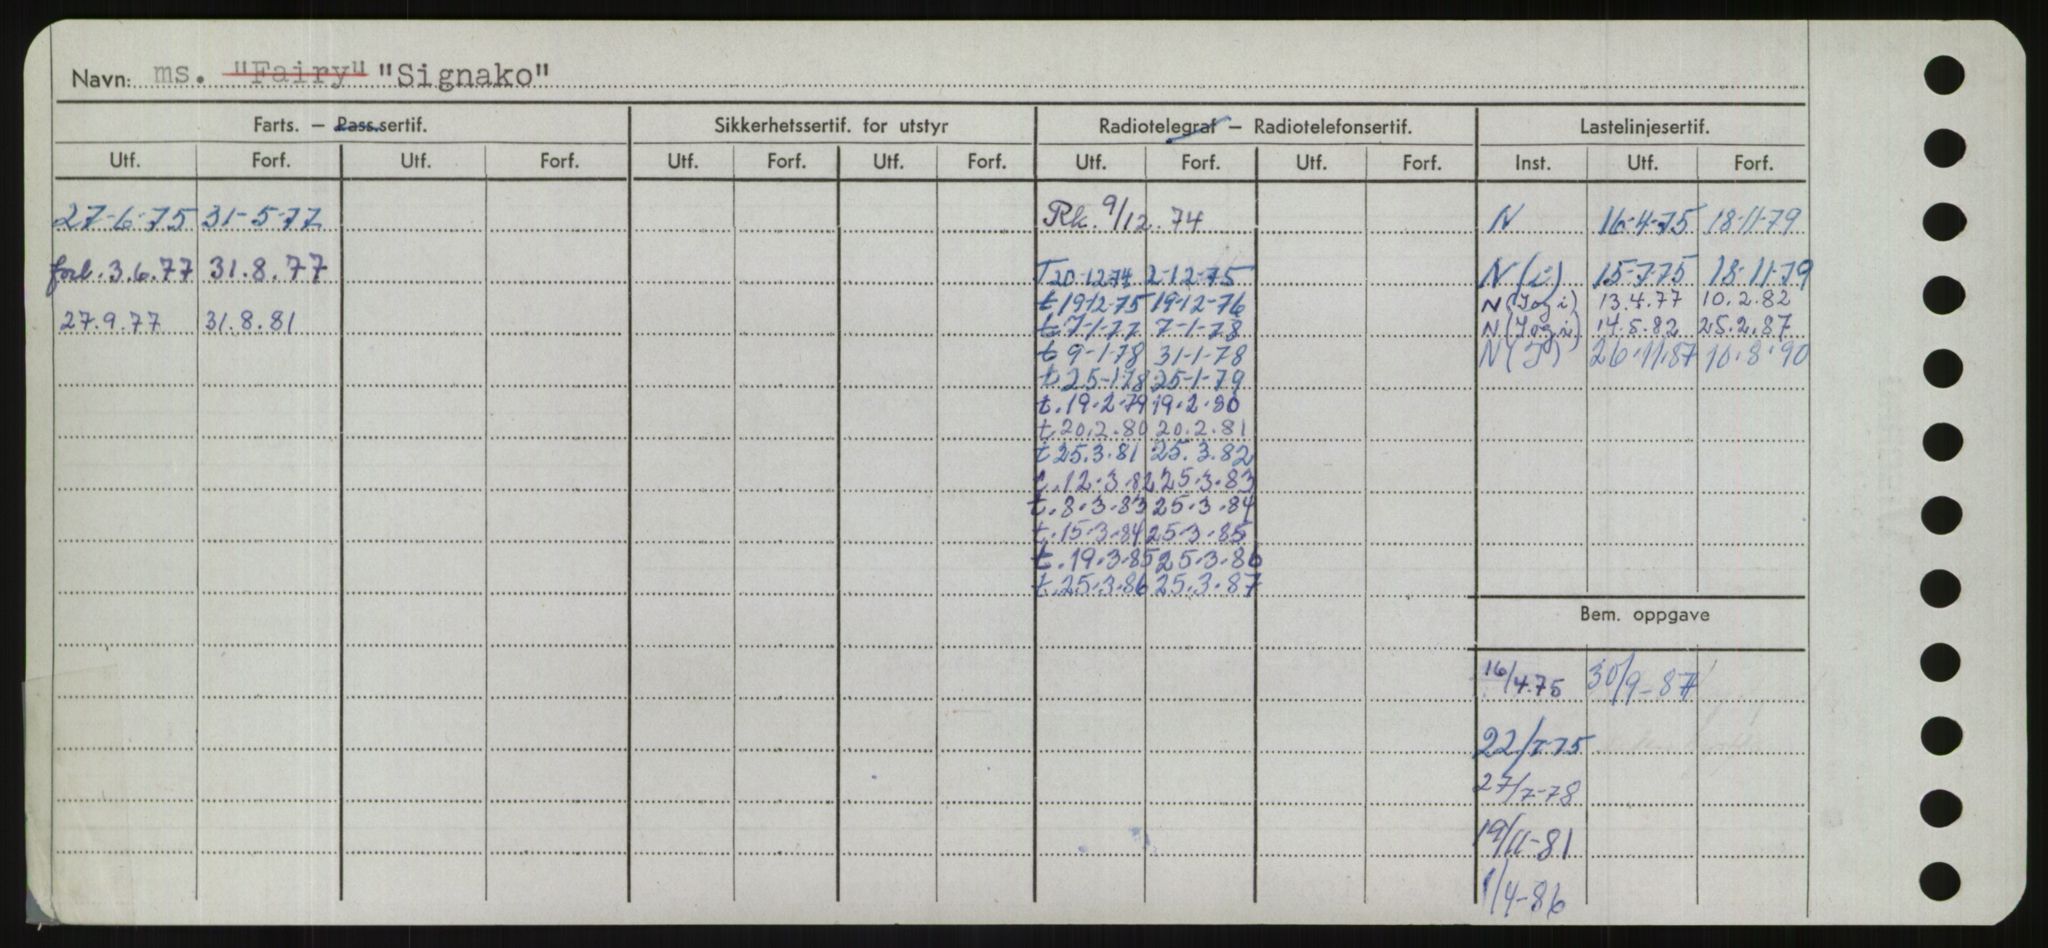 Navn: ms. "Fairy" "Signako"
Farts. — Pass.sertif. Sikkerhetssertif. for utstyr Radiotelegraf — Radiotelefonsertif. Lastelinjesertif.
Utf. Forf. Utf. Forf. Utf. Forf. Utf. Forf. Utf. Forf. Utf. Forf. Inst. Utf. Forf.
27-6-75 31-5-77 Rk. 9/12.74 N 16-4-75 18-11-79
forl. 3.6.77 31.8.77 T 20-12-74 2-12-75 N (i) 15-7-75 18-11-79
t. 19-12-75 19-12-76 N (I og i) 13.4.77 10.2.82
27.9.77 31.8.81 t. 7-1-77 7-1-78 N (I og i) 14.5.82 25.2.87
t 9-1-78 31-1-78 N (I) 26.11.87 10.8.90
t. 25-1-78 25-1-79
t. 19.2.79 19.2.80
t. 20.2.80 20.2.81
t 25.3.81 25.3.82
t. 12.3.82 25.3.83
t. 8.3.83 25.3.84
t. 15.3.84 25.3.85
t. 19.3.85 25.3.86
t. 25.3.86 25.3.87
Bem. oppgave
16/4.75 30/9-87
22/7-75
27/7-78
19/11-81
1/4-86